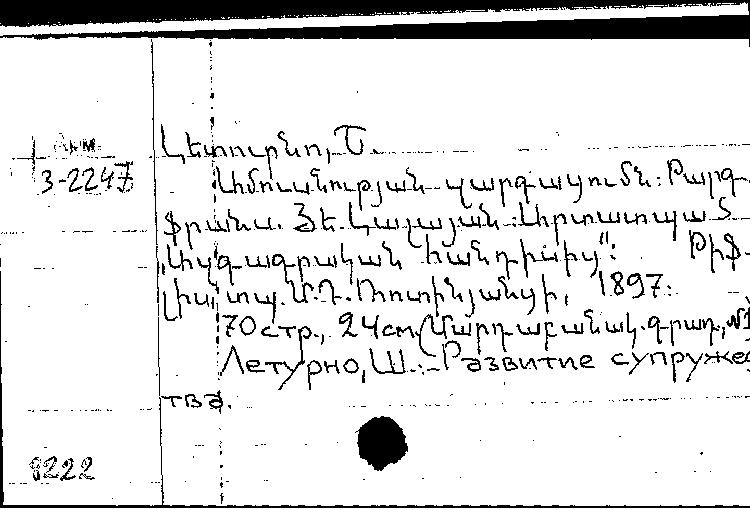 Арм.
3-2247
Լետուրնո, Շ.
Ամուսնության զարգացումն: Թարգ.
ֆրանս. Յե. Լալայան: Արտատպած
„Ազգագրական հանդիսից": Թիֆ-
լիս, տպ. Մ. Դ. Ռոտինյանցի, 1897.
70 стр., 24 см. (Մարդաբանակ. գրադ., №1
Летурно, Ш. Развитие супружес
тва.
8222